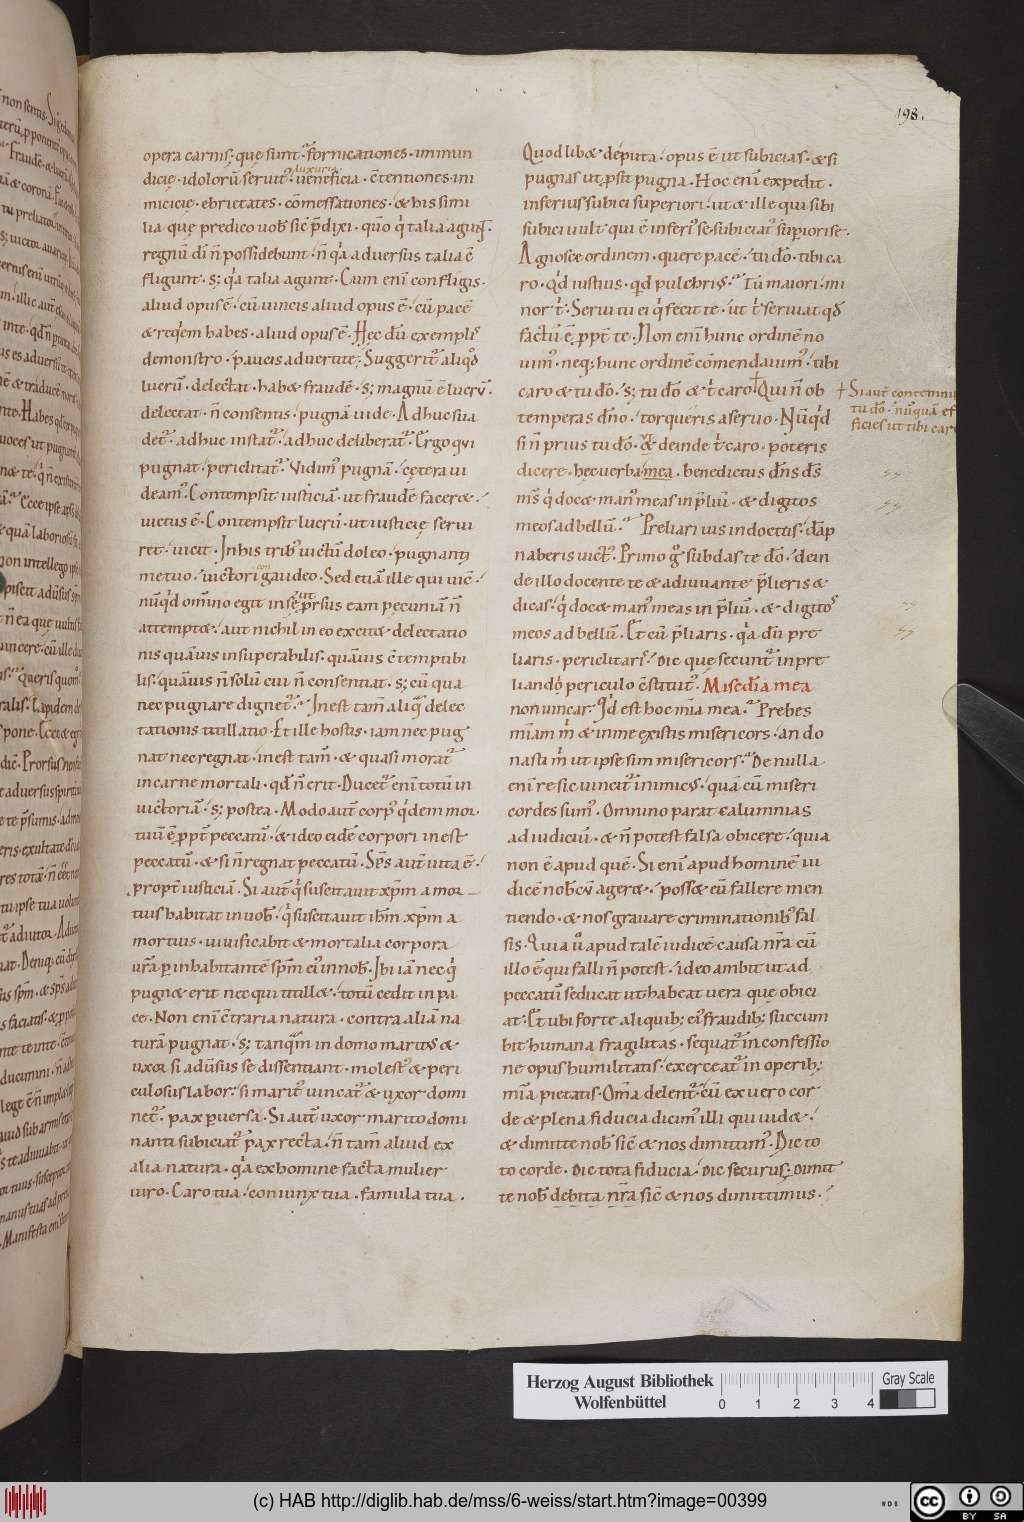 198.
opera carnis· quę sunt· fornicationes· inmun
dicię· idolorū seruit᷒· ueneficia· c̄tentiones· ini
luxuria
micicię· ebrietates· cōmessationes· & his simi
lia quę predico uob̄ sic̄ p̄dixi· quō q̇ talia agunt·
regnū dī n̄ possidebunt· n̄ q̇a aduersus talia c̄
fligunt· s; q̇a talia agunt· Cum enī confligis·
aliud opus ē· cū uincis aliud opus ē· cū pacē
& req̇em habes· aliud opus ē· Hęc dū exempl᷒
demonstro· paucis aduertite· Suggerit᷒ aliq̇d
lucrū· delectat· hab& fraudē· s; magnū ē lucrū·
delectat· n̄ consentis· pugnā uide· Adhuc sua
det᷒· adhuc instat᷒· adhuc deliberat᷒· Ergo qui
pugnat· periclitat᷒· Vidim᷒ pugnā· cętera ui
deam᷒· Contempsit iusticiā· ut fraudē facer&·
uictus ē· Contempsit lucrū· ut iusticię serui
ret· uicit· In his trib᷒ uictū doleo· pugnanti
metuo· uictori gaudeo· Sed etiā ille qui uic̄·
con
nūq̇d om̄ino egit in se ut prsus eam pecuniā n̄
attempt&· aut nichil in eo excit& delectatio
nis quāuis insuperabilis· quāuis c̄temptibi
lis· quāuis n̄ solū cui n̄ consentiat· s; cū qua
nec pugnare dignet᷒· Inest tam̄ aliqua delec
tationis titillatio· Et ille hostis· iam nec pug
nat nec regnat· inest tam̄· & quasi morat᷒
in carne mortali· qd̄ n̄ erit· Ducet᷒ enī totū in
uictoriā· s; postea· Modo aut̄ corp᷒ q̇dem mor
tuū ē ppt̄ peccatū· & ideo eidē corpori inest
peccatū· & si n̄ regnat peccatū· Sp̄s aut̄ uita ē·
propt̄ iusticiā· Si aut̄ q̇ suscitauit xp̄m a mor
tuis habitat in uob̄· q̇ suscitauit ih̄m xp̄m a
mortuis· uiuificabit & mortalia corpora
ur̄a p inhabitantē sp̄m ei᷒ in nob̄· Ibi iā nec q̇
pugn& erit nec qui titill&· totū cedit in pa
ce· Non enī c̄traria natura· contra aliā na
turā pugnat· s; tanquam in domo marit᷒ &
uxor si adūsus se dissentiant· molest᷒ & peri
culosus labor· si marit᷒ uincat᷒ & uxor domi
net᷒· pax puersa· Si aut̄ uxor marito domi
nanti subiciat᷒ pax recta· n̄ tam̄ aliud ex
alia natura· q̇a ex homine facta mulier
uiro· Caro tua· coniunx tua· famula tua·
Quod lib& deputa· opus ē ut subicias· & si
pugnas ut p̄sit pugna· Hoc enī expedit·
inferius subici superiori· ut & ille qui sibi
subici uult· qui ē inferi᷒ se· subiciat᷒ superiori se·
Agnosce ordinem· quere pacē· tu dō· tibi ca
ro· Qd̄ iustius· qd̄ pulchri᷒· Tu maiori· mi
nor t̄· Serui tu ei q̇ fecit te· ut t̄ seruiat qd̄
factū ē ppt̄ te· Non enī hunc ordinē no
uim᷒· neq; hunc ordinē cōmendauim᷒· tibi
caro & tu dō· s; tu dō & t̄ caro· Qui n̄ ob
temperas dn̄o· torqueris a seruo· Nūq̇d
si n̄ prius tu dō· & deinde t̄ caro· poteris
dicere· hęc uerba mea· benedictus dn̄s ds̄
ms̄ q̇ doc& man᷒ meas in p̄liū· & digitos
meos ad bellū· Preliari uis indoctus· dāp
naberis uict᷒· Primo g̊ subdas te dō· dein
de illo docente te & adiuuante p̄lieris &
dicas· q̇ doc& man᷒ meas in p̄liū· & digito᷒
meos ad bellū· Et cū p̄liaris· q̇a dū pre
liaris· periclitaris· Dic que secunt᷒ in pre
liandi periculo c̄stitut᷒· Miscd̄ia mea
non uincar· Qd̄ est hoc mīa mea· Prebes
mīam m̄ & in me existis misericors· an do
nasti m̄ ut ipse sim misericors· De nulla
enī re sic uincit᷒ inimic᷒· quā cū miseri
cordes sum᷒· Omnino parat calumnias
ad iudiciū· & n̄ potest falsa obicere· quia
non ē apud quē· Si enī apud hominē iu
dicē nob̄cū ager&· poss& eū fallere men
tiendo· & nos grauare criminationib᷒ fal
sis· Quia ů apud talē iudicē causa nr̄a cū
illo ē qui falli n̄ potest· ideo ambit ut ad
peccatū seducat ut habeat uera que obici
at· Et ubi forte aliquib; ei᷒ fraudib; succum
bit humana fragilitas· sequat᷒ in confessio
ne opus humilitatis· exerceat᷒ in operib;
mīa pietatis· Om̄a delent᷒· cū ex uero cor
de & plena fiducia dicim᷒ illi qui uid&·
& dimitte nob̄ sic̄ & nos dimittim᷒· Dic to
to corde· dic tota fiducia· dic securus· Dimit
te nob̄ debita nr̄a sic̄ & nos dimittimus·
Si aut̄ contemnis
tu dō· nūquā ef
ficies ut tibi caro
Herzog August Bibliothek
Wolfenbüttel
Gray Scale
0 1 2 3 4
(c) HAB http://diglib.hab.de/mss/6-weiss/start.htm?image=00399
cc BY SA